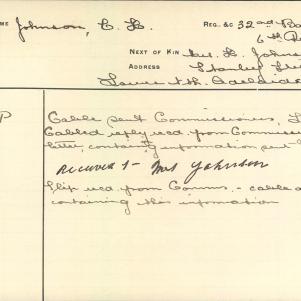 ME Johnson, C. L. REG. &c 32nd Ba
6th R
NEXT OF KIN Mrs. L. Johns
ADDRESS Stanley Str
Lower Nth. Adelaide
P
Cable sent Commissioners, L
Cabled reply recd from Commissi
letter, containing information sent
Received 1 - Mrs Johnson
Slip recd from Comms. - cable a
containing this information